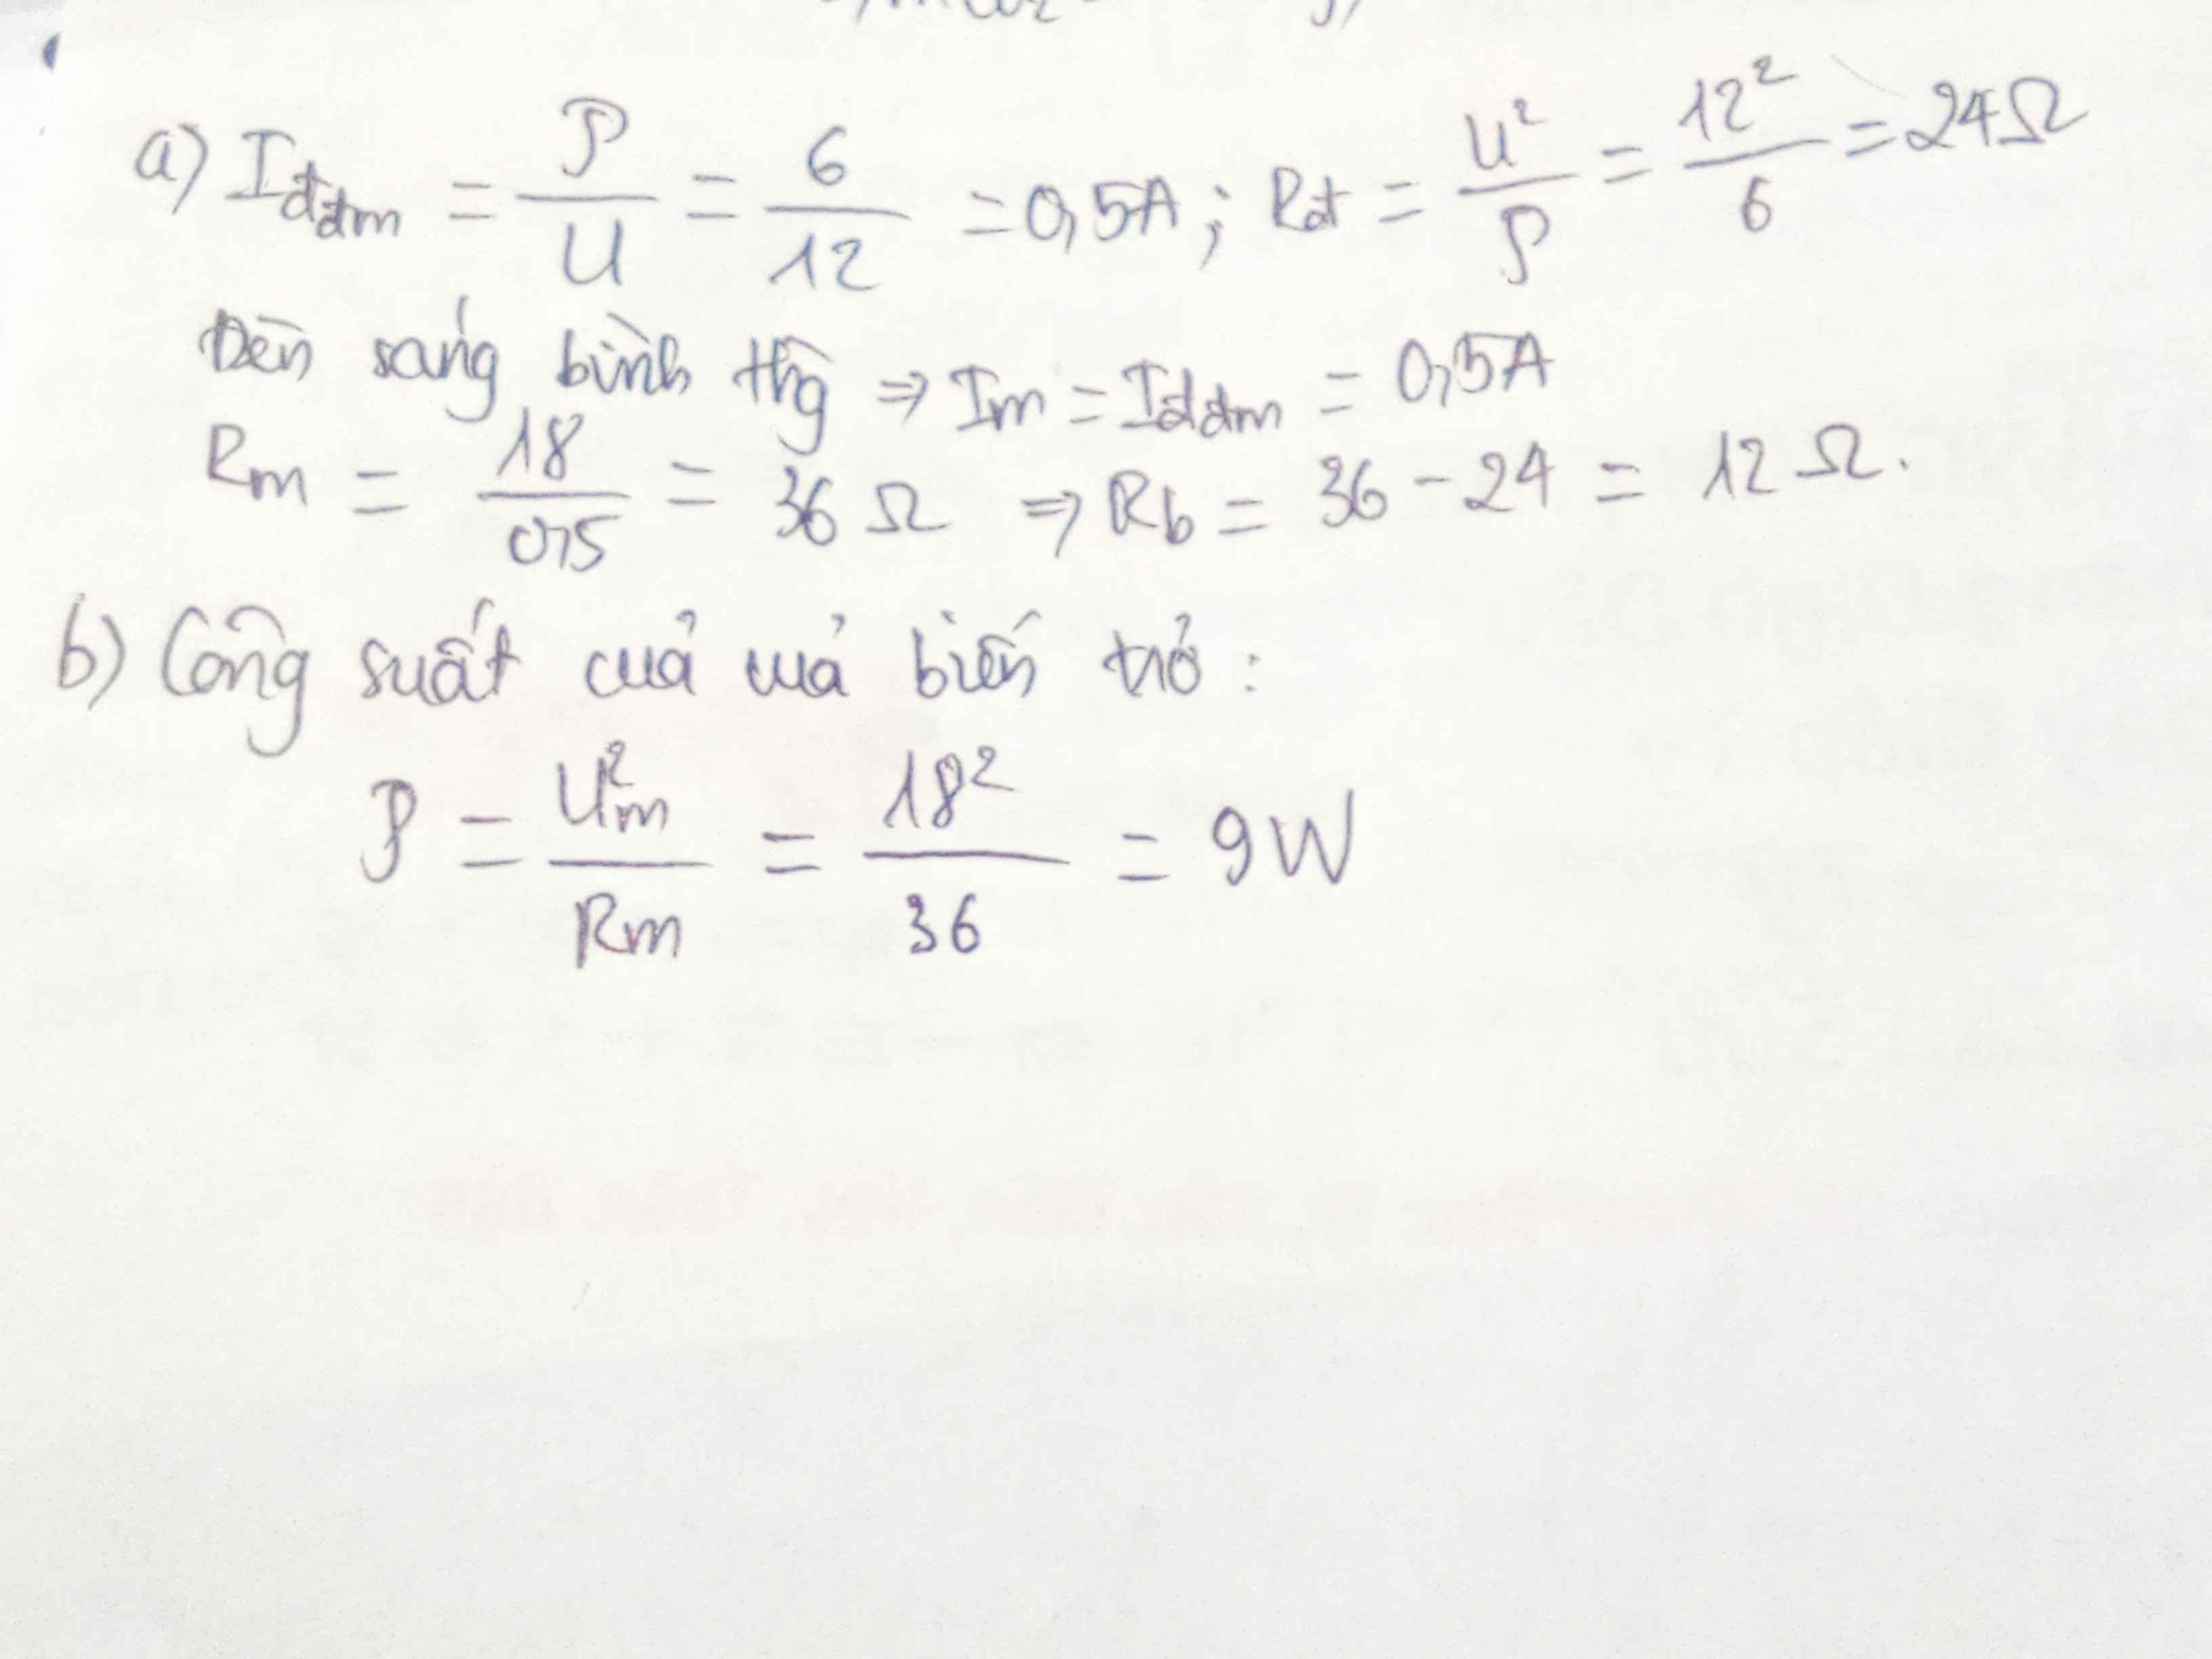 a) Iđđm = P/U = 6/12 = 0,5A; Rđ = U²/P = 12²/6 = 24Ω
Đèn sáng bình thg ⇒ Im = Iđđm = 0,5A
Rm = 18/0,5 = 36 Ω ⇒ Rb = 36 - 24 = 12 Ω.
b) Công suất của của biến trở :
P = U²m/Rm = 18²/36 = 9W